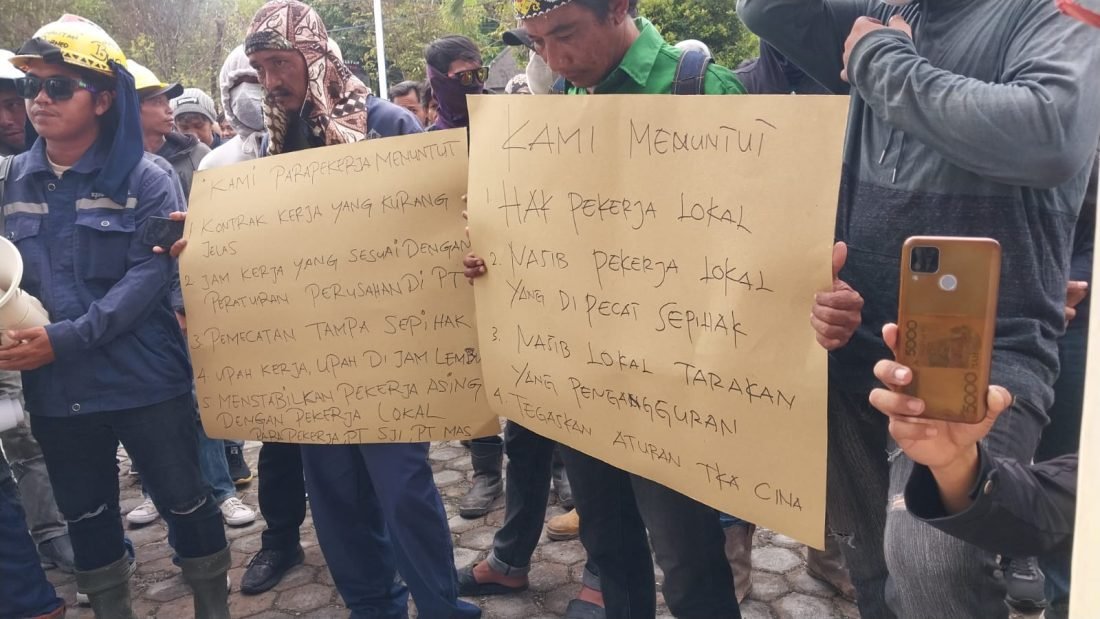 "KAMI PARAPEKERJA MENUNTUT
1 KONTRAK KERJA YANG KURANG
JELAS
2. JAM KERJA YANG SESUAI DENGAN
PERATURAN PERUSAHAN DI PT
3 PEMECATAN TAMPA SEPIHAK
4 UPAH KERJA, UPAH DI JAM LEMBU
5 MENSTABILKAN PEKERJA ASING
DENGAN PEKERJA LOKAL
PARA PEKERJA PT SJI PT MAS
KAMI MENUNTUT
1. HAK PEKERJA LOKAL
2. NASIB PEKERJA LOKAL
YANG DI PECAT SEPIHAK
3. NASIB LOKAL TARAKAN
YANG PENGANGGURAN
4. TEGASKAN ATURAN TKA CINA
5000
5000